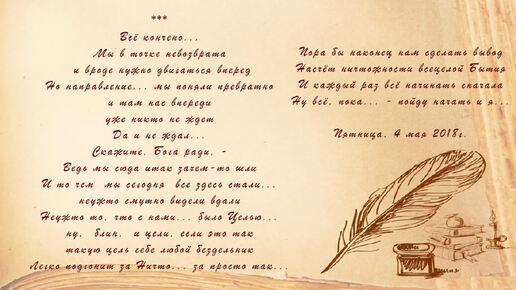 ***
Всё кончено...
Мы в точке невозврата
и вроде нужно двигаться вперед
Но направление... мы поняли превратно
и там нас впереди
уже никто не ждет
Да и не ждал...
Скажите, Бога ради, -
Ведь мы сюда итак зачем-то шли
И то чем мы сегодня все здесь стали...
неужто смутно видели вдали
Неужто то, что с нами... было Целью...
ну, блин, и цели, если это так
такую цель себе любой бездельник
Легко подгонит за Ничто... за просто так...
Пора бы наконец нам сделать вывод
Насчёт ничтожности всецелой Бытия
И каждый раз всё начинать сначала
Ну всё, пока... - пойду начать и я...
Пятница, 4 мая 2018г.